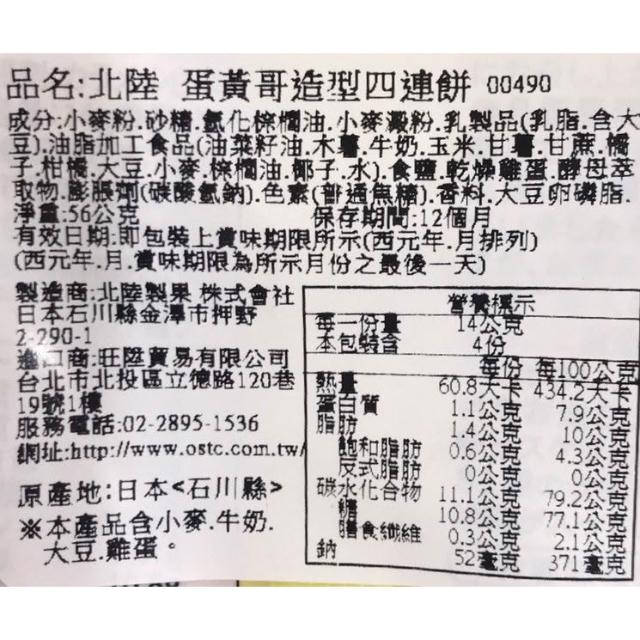 品名:北陸 蛋黃哥造型四連餅 00490
成分:小麥粉.砂糖.氫化棕櫚油.小麥澱粉.乳製品(乳脂.含大
豆).油脂加工食品(油菜籽油.木薯.牛奶.玉米.甘薯.甘蔗.橘
子.柑橘.大豆.小麥.棕櫚油.椰子.水).食鹽.乾燥雞蛋.酵母萃
取物.膨脹劑(碳酸氫鈉).色素(普通焦糖).香料.大豆卵磷脂.
淨重:56公克 保存期間:12個月
有效日期:即包裝上賞味期限所示(西元年.月排列)
(西元年.月.賞味期限為所示月份之最後一天)
製造商:北陸製果 株式會社
日本石川縣金澤市押野
2-290-1
進口商:旺陸貿易有限公司
台北市北投區立德路120巷
19號1樓
服務電話:02-2895-1536
網址:http://www.ostc.com.tw/
原產地:日本<石川縣>
※本產品含小麥.牛奶.
大豆.雞蛋。
營養標示
每一份量 14公克
本包裝含 4份
每份 每100公克
熱量 60.8大卡 434.2大卡
蛋白質 1.1公克 7.9公克
脂肪 1.4公克 10公克
飽和脂肪 0.6公克 4.3公克
反式脂肪 0公克 0公克
碳水化合物 11.1公克 79.2公克
糖 10.8公克 77.1公克
膳食纖維 0.3公克 2.1公克
鈉 52毫克 371毫克